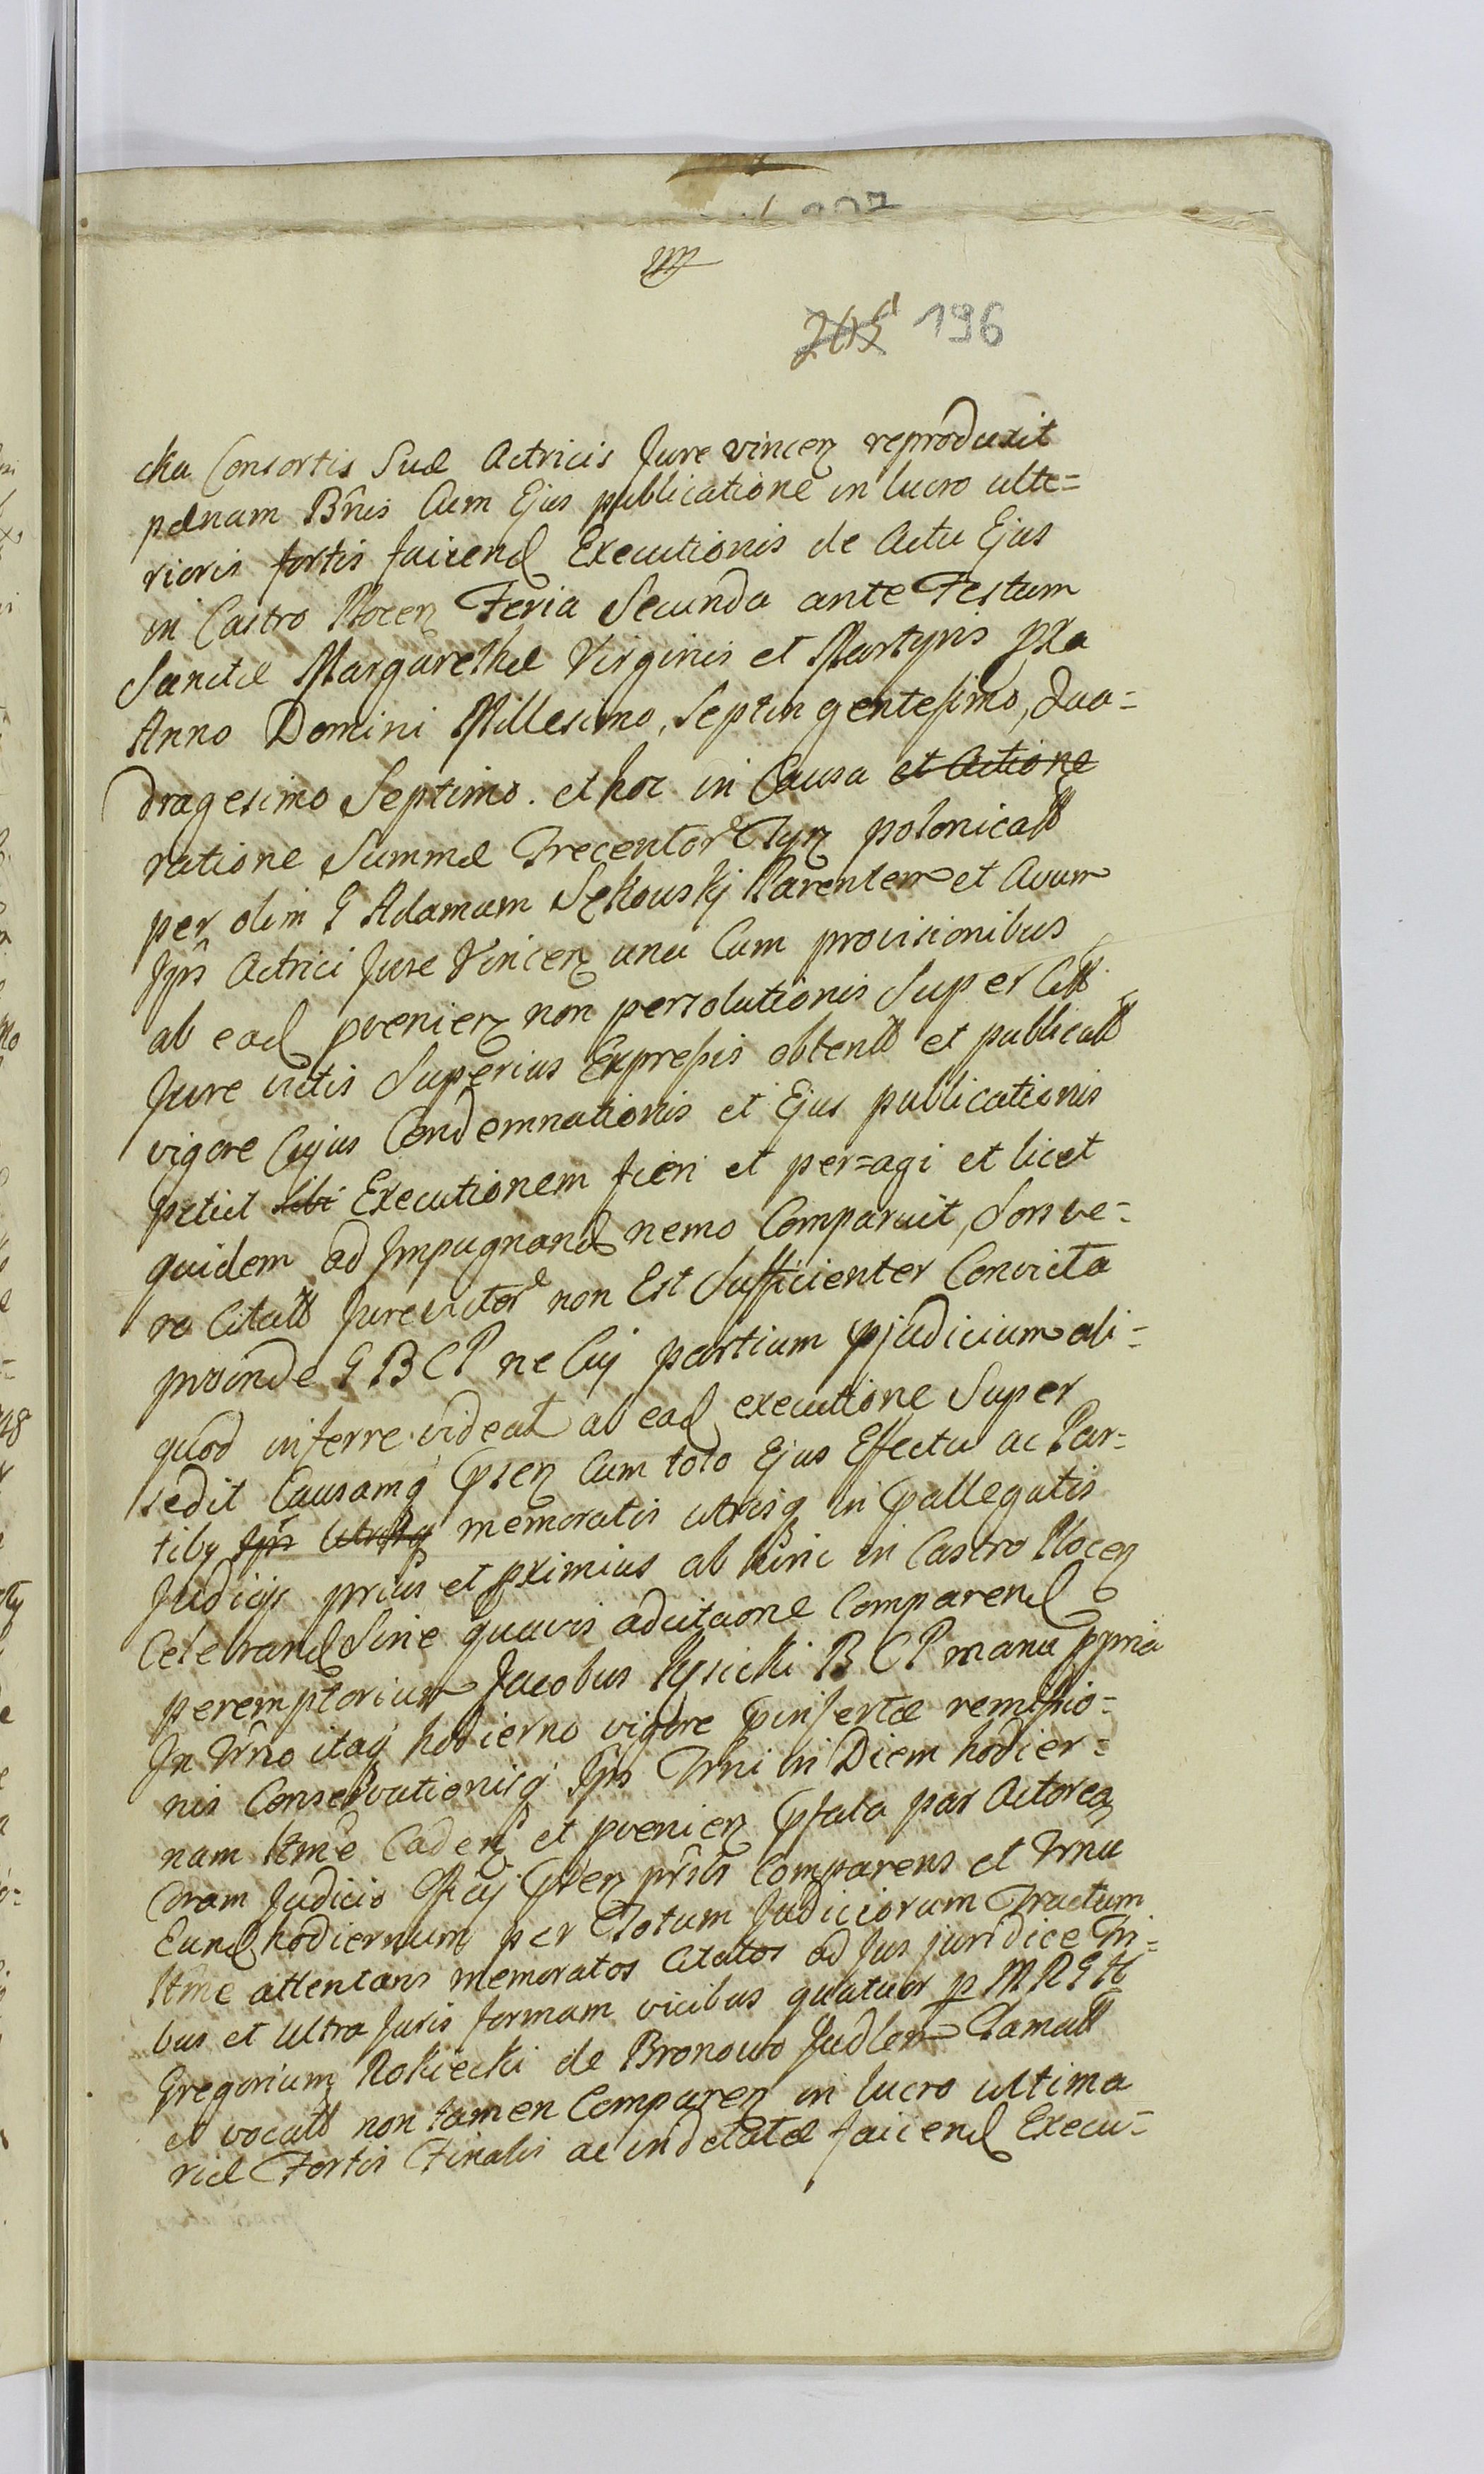 205 196
cka Consortis Suæ Actricis Jure vincen reproduxit
pænam Bnis Cum Ejus publicatione in lucro ulte=
rioris fortis faciend Executionis de Actu Ejus
in Castro Plocen Feria Secunda ante Festum
Sanctæ Margarethæ Virginis et Martyris pxa
Anno Domini Millesimo, Septingentesimo, Qua=
dragesimo Septimo. et hoc in Causa et Actione
ratione Summæ Trecentor Tyn polonicall
per olim G Adamum Sękowskj Parentem et Avum
Ipis Actrici Jure Vincen una Cum provisionibus
ab ead pvenien non persolutionis Super Citt
Jure victis Superius Expressis obtentt et publicatt
vigore Cujus Condemnationis et Ejus publicationis
petiit sibi Executionem fieri et per=agi et licet
quidem ad Impugnand nemo Comparuit, Sors ve=
ro Citatt Jure victor non Est Sufficienter Convicta
proinde G B C P ne Cuj partium pjudicium ali=
quod inferre videat ab ead executione Super
sedit Causamq psen Cum toto Ejus Effectu ac Par=
tiby Ipis Utrisq memoratis utrisq in pallegatis
Judicijs prius et pximius ab hinc in Castro Plocen
Celebrand Sine quavis adcitaone Comparend
peremptorium Jacobus Kysicki B C P manu ppria
In Trno itaq hodierno vigore pinsertæ remissio=
nis Conservationisq Ipis Trni in Diem hodier=
nam Itme Caden et pvenien pfata pars Actorea
Coram Judicio Officij psen prsls Comparens et Trnu
Eund hodiernum per Totum Judiciorum Tractum
Itme attentans memoratos Citatos ad Jus juridice Tri=
bus et Ultra Juris formam vicibus quatuor p M R G H
Gregorium Rokiecki de Bronowo Judlem Clamatt
et vocatt non tamen Comparen in lucro ultima
riæ Fortis Finalis ac indelatæ faciend Execu=